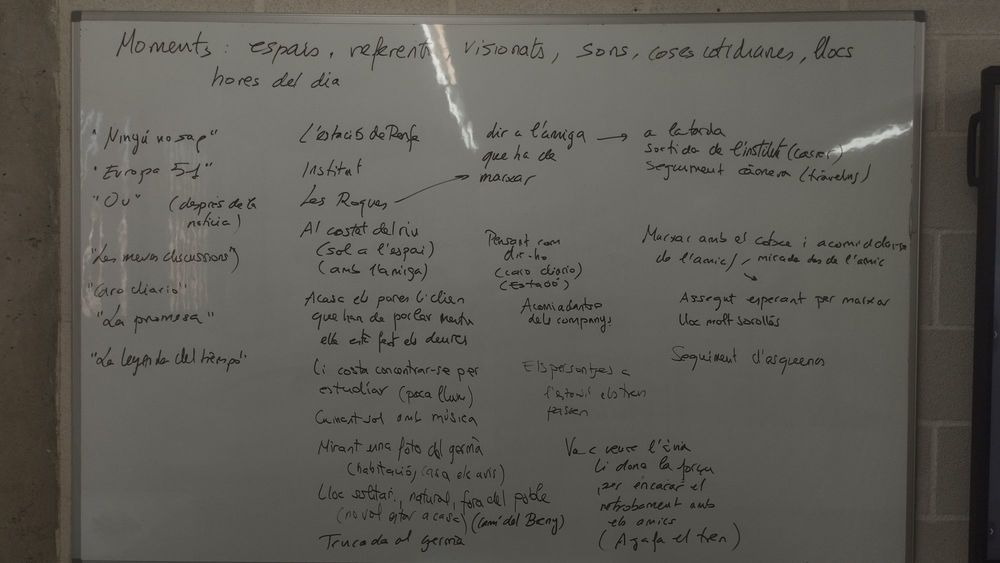 Moments: espais, referents, visionats, sons, coses cotidianes, llocs
hores del dia
"Ningú no sap"
"Europa 51"
"Ou" (després de la
notícia)
"Les meves discussions")
"Caro diario"
"La promesa"
"La leyenda del tiempo"
L'estació de Renfe
Institut
Les Roques
Al costat del riu
(sol a l'espai)
(amb l'amiga)
A casa els pares li dien
que han de parlar mentre
ella està fent els deures
Li costa concentrar-se per
estudiar (poca llum)
Caminant sol amb música
Mirant una foto del germà
(habitació, casa els avis)
Lloc solitari, natural, fora del poble
(no vol estar a casa) (camí del)
Trucada al germà
dir a l'amiga →
que ha de
marxar
Pensant com
dir-ho
(caro diario)
(Estació)
Acomiadant-se
dels companys
Els personatges a
l'estació els tren
passen
Va a veure l'àvia
Li dona la força
per encarar el
retrobament amb
els amics
(Agafa el tren)
a la tarda
sortida de l'institut (carrer)
seguiment càmera (travelling)
Marxar amb el cotxe i acomiadar-se
de l'amic / mirada des de l'amic
Assegut esperant per marxar
lloc molt sorollós
Seguiment d'esquenes